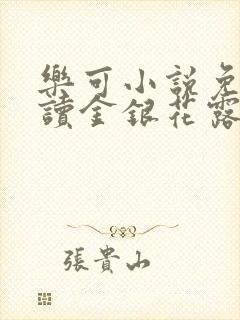 樂可小說免
讀金銀花露
張貴山